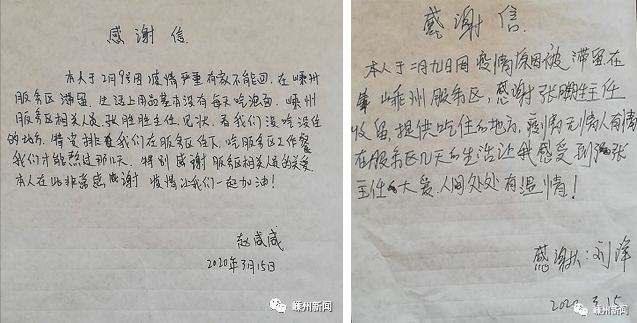 感谢信
本人于2月9号因疫情严重有家不能回.在嵊州
服务区滞留.生活上用品基本没有每天吃泡面.嵊州
服务区相关人员张胜胜主任.见状.看我们没吃没住
的地方.特安排我们在服务区住下.吃服务区工作餐
我们才能熬过那几天.特别感谢服务区相关人员的关爱.
本人在此非常感谢 疫情让我们一起加油!
赵咸威
2020年3月15日
嵊州新闻
感谢信
本人于二月九日因疫情原因被滞留在
嵊州服务区,感谢张胜胜主任
收留提供吃住的地方,疫情无情人有情
在服务区几天的生活让我感受到张
主任的大爱.人间处处有温情!
感谢人:刘泽
2020 3.15
嵊州新闻